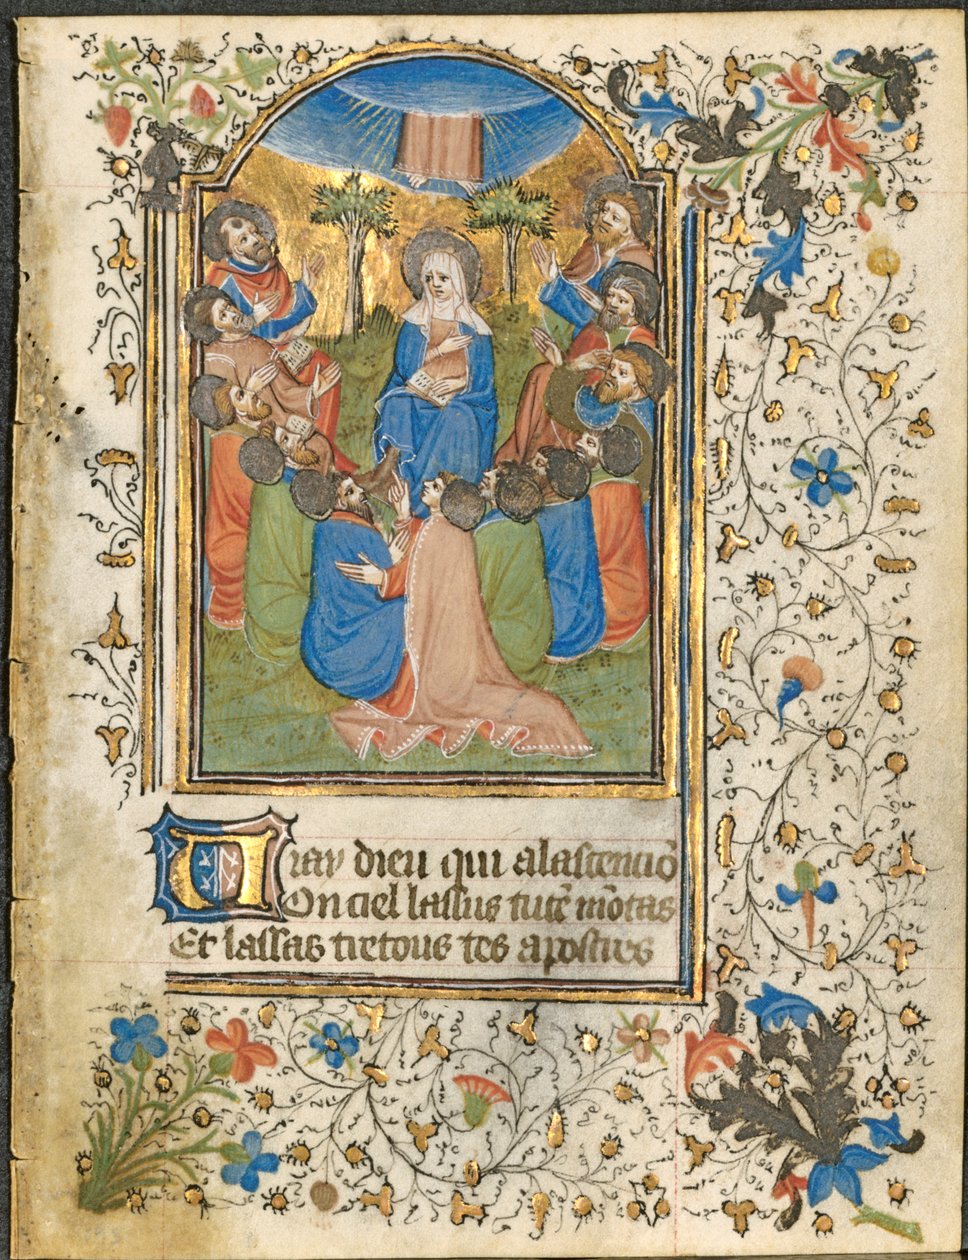 Vray dieu qui alascenciō
Ou ciel lassus tutē mōtas
Et lassas tretous tes apostres